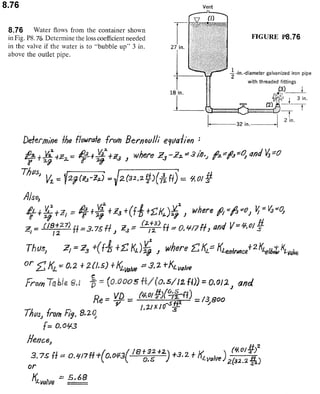 8.76
8.76 Water flows from the container shown
in Fig. P8.76. Determine the loss coefficient needed
in the valve if the water is to “bubble up” 3 in.
above the outlet pipe.
Vent
(1)
FIGURE P8.76
27 in.
1/2-in.-diameter galvanized iron pipe
with threaded fittings
18 in.
(3)
3 in.
(2)
2 in.
32 in.
Determine the flowrate from Bernoulli equation :
p₂/γ + V₂²/2g + z₂ = p₃/γ + V₃²/2g + z₃ , where z₃-z₂ = 3 in., p₂=p₃=0, and V₃=0
Thus,
V₂ = √2g(z₃-z₂) = √2(32.2 ft/s²)(3/12 ft) = 4.01 ft/s
Also,
p₁/γ + V₁²/2g + z₁ = p₂/γ + V₂²/2g + z₃ + (f l/D + ΣK_L) V²/2g , where p₁=p₂=0, V₁=V₃=0,
z₁ = (18+27)/12 ft = 3.75 ft , z₃ = (2+3)/12 ft = 0.417 ft, and V = 4.01 ft/s
Thus, z₁ = z₃ + (f l/D + ΣK_L) V²/2g , where ΣK_L = K_Lentrance + 2K_Lelbow + K_Lvalve
or ΣK_L = 0.2 + 2(1.5) + K_Lvalve = 3.2 + K_Lvalve
From Table 8.1 ε/D = (0.0005 ft/(0.5/12 ft)) = 0.012 , and
Re = VD/ν = (4.01 ft/s)(0.5/12 ft) / 1.21×10⁻⁵ ft²/s = 13,800
Thus, from Fig. 8.20
f = 0.043
Hence,
3.75 ft = 0.417 ft + (0.043 (18+32+2/0.5) + 3.2 + K_Lvalve) (4.01 ft/s)²/2(32.2 ft/s²)
or
K_Lvalve = 5.68